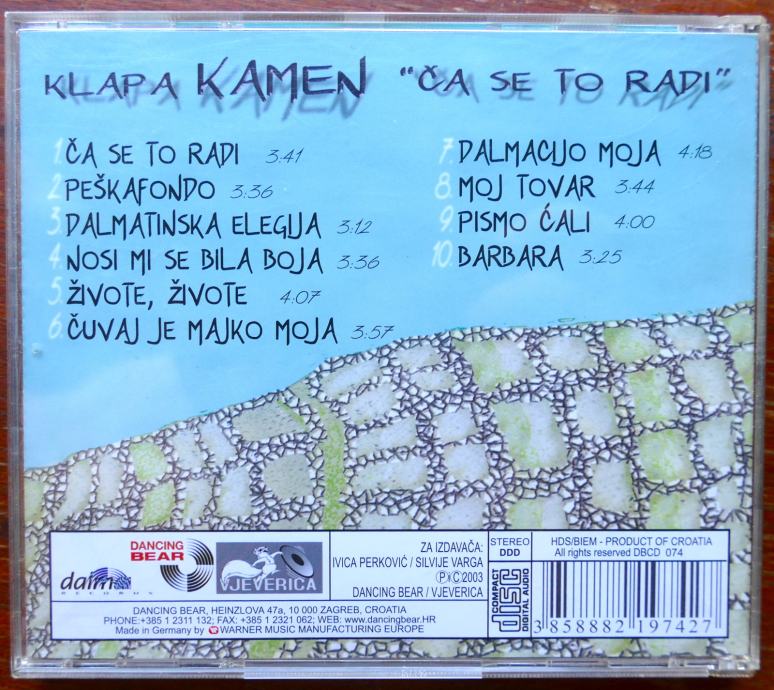 KLAPA KAMEN "ČA SE TO RADI"
1. ČA SE TO RADI 3:41
2. PEŠKAFONDO 3:36
3. DALMATINSKA ELEGIJA 3:12
4. NOSI MI SE BILA BOJA 3:36
5. ŽIVOTE, ŽIVOTE 4:07
6. ČUVAJ JE MAJKO MOJA 3:57
7. DALMACIJO MOJA 4:18
8. MOJ TOVAR 3:44
9. PISMO ĆALI 4:00
10. BARBARA 3:25
dalm
RECORDS
DANCING
BEAR
VJEVERICA
ZA IZDAVAČA:
IVICA PERKOVIĆ / SILVIJE VARGA
Ⓟ©2003
DANCING BEAR / VJEVERICA
STEREO
DDD
COMPACT
disc
DIGITAL AUDIO
HDS/BIEM - PRODUCT OF CROATIA
All rights reserved DBCD 074
3 858882 197427
DANCING BEAR, HEINZLOVA 47a, 10 000 ZAGREB, CROATIA
PHONE:+385 1 2311 132; FAX: +385 1 2321 062; WEB: www.dancingbear.HR
Made in Germany by WARNER MUSIC MANUFACTURING EUROPE